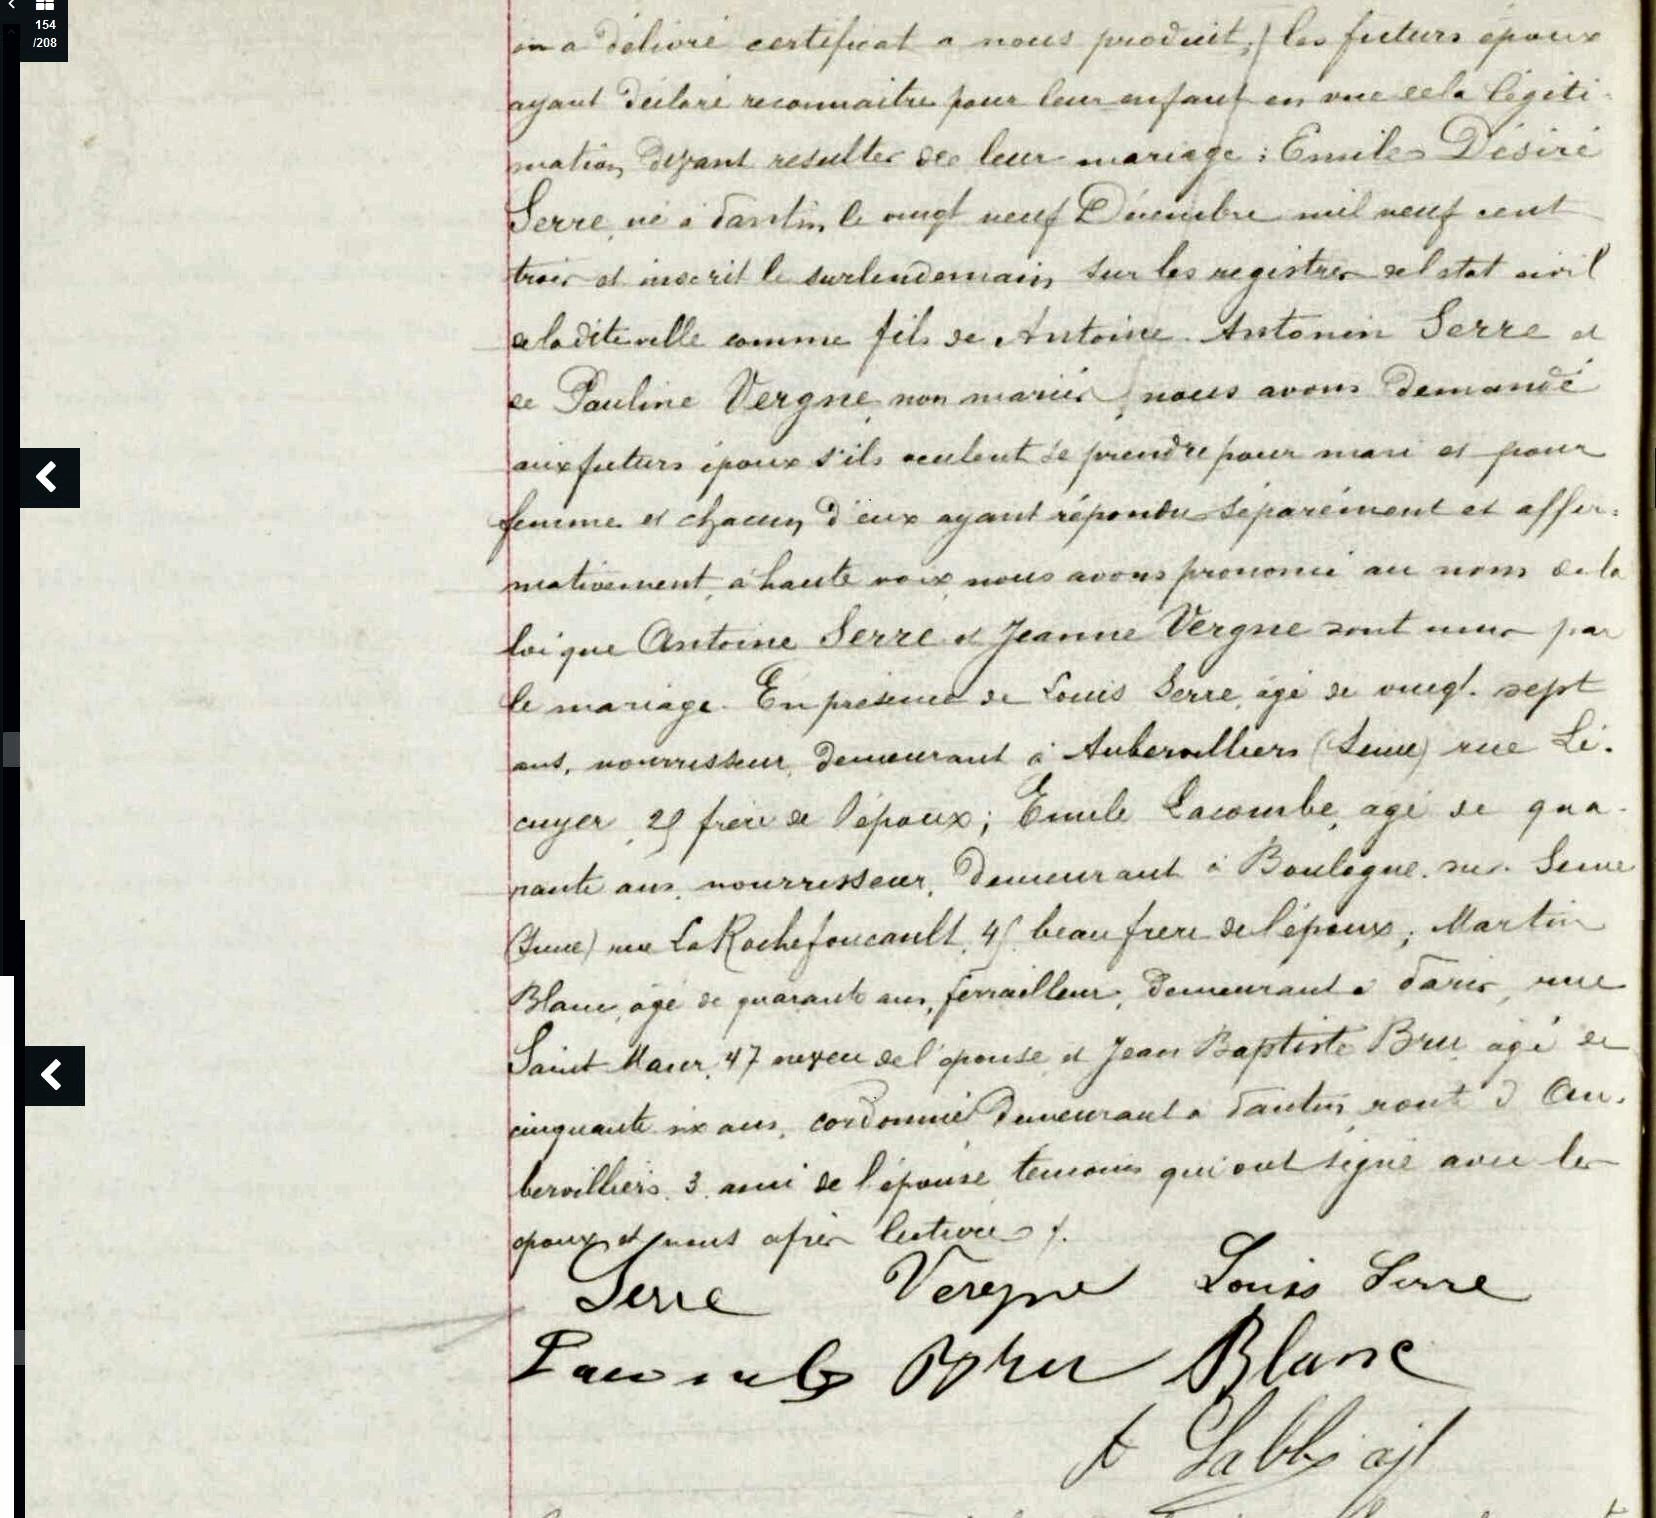 154
/208
en a délivré certificat a nous produit; les futurs époux
ayant déclaré reconnaitre pour leur enfant en vue de la légiti-
mation devant resulter de leur mariage: Emile Désiré
Serre, né à Pantin, le vingt neuf Décembre mil neuf cent
trois et inscrit le surlendemain sur les registres de l'état civil
de la dite ville comme fils de Antoine Antonin Serre et
de Pauline Vergne non mariés, nous avons demandé
aux futurs époux s'ils veulent se prendre pour mari et pour
femme et chacun d'eux ayant répondu séparément et affir-
mativement, à haute voix, nous avons prononcé au nom de la
loi que Antoine Serre et Jeanne Vergne sont unis par
le mariage. En présence de Louis Serre, âgé de vingt sept
ans, nourrisseur, demeurant à Aubervilliers (Seine) rue Lé-
cuyer, 29 frère de l'époux; Emile Lacombe, agé de qua-
rante ans, nourrisseur, demeurant à Boulogne sur Seine
(Seine) rue La Rochefoucault, beau frère de l'époux; Martin
Blanc, âgé de quarante ans, ferrailleur, demeurant à Paris, rue
Saint Maur, 47 neveu de l'épouse et Jean Baptiste Bru, agé de
cinquante six ans, cordonnier demeurant à Pantin, route d'Au-
bervilliers, 3, ami de l'épouse, temoins qui ont signé avec les
époux et nous après lecture.
Serre Vergne Louis Serre
Lacombe Bru Blanc